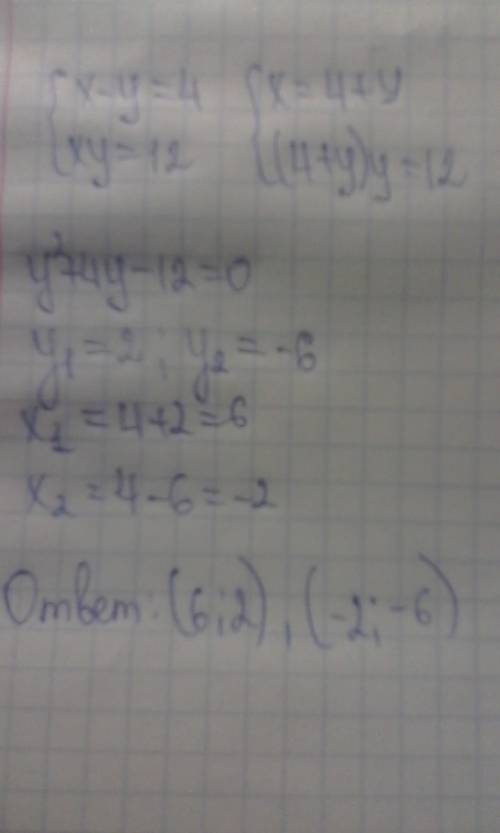 {x-y=4 {x=4+y
{xy=12 {(4+y)y=12
y²+4y-12=0
y₁=2; y₂=-6
x₁=4+2=6
x₂=4-6=-2
Ответ: (6;2), (-2;-6)